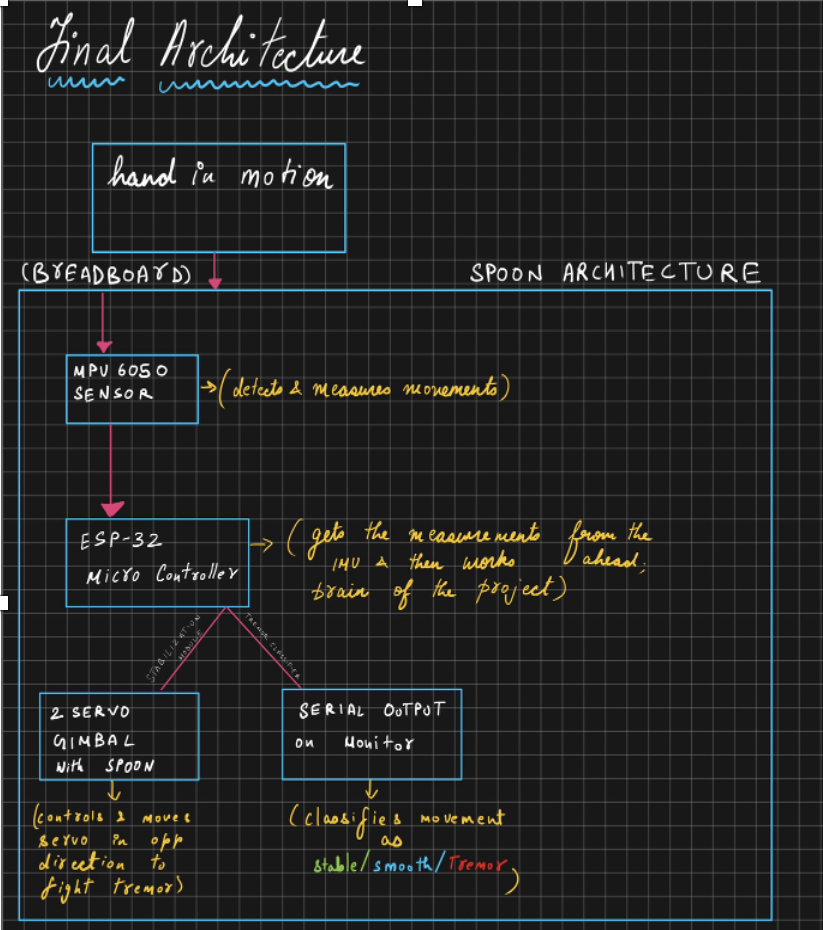 Final Architecture
hand in motion
(BREADBOARD)
SPOON ARCHITECTURE
MPU 6050
SENSOR
(detects & measures movements)
ESP-32
Micro Controller
(gets the measurements from the
IMU & then works ahead;
brain of the project)
STABILIZATION
MODULE
TREMOR CLASSIFIER
2 SERVO
GIMBAL
with SPOON
SERIAL OUTPUT
on Monitor
(controls & moves
servo in opp
direction to
fight tremor)
(classifies movement
as
stable/smooth/Tremor)